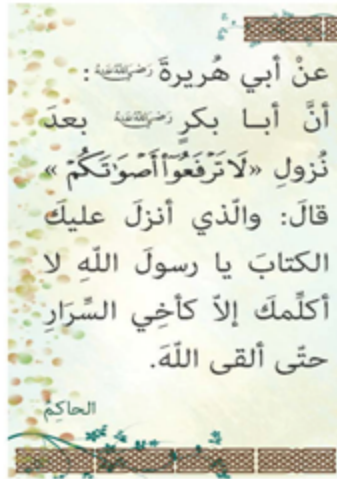 عنْ أبي هُريرةَ رَضِيَ اللهُ عَنْهُ :
أنَّ أبـا بكرٍ رَضِيَ اللهُ عَنْهُ بعدَ
نُزولِ «لَا تَرْفَعُوٓا۟ أَصْوَٰتَكُمْ »
قالَ: والّذي أنزلَ عليكَ
الكتابَ يا رسولَ اللّهِ لا
أكلِّمكَ إلاّ كأخِي السِّرَارِ
حتّى ألقى اللّهَ.
الحاكِمُ